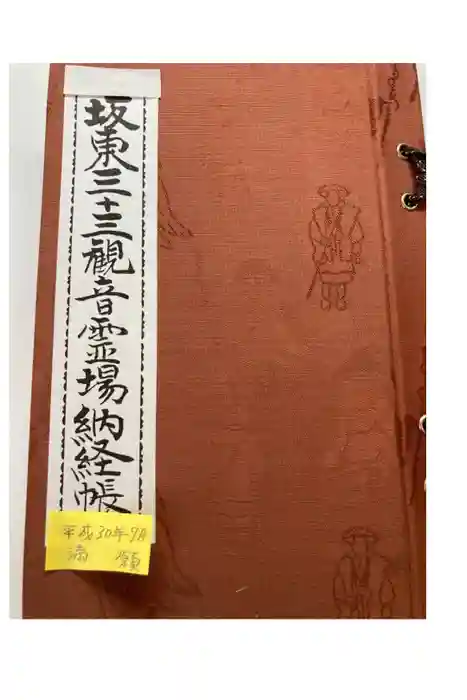 坂東三十三観音霊場納経帳
平成30年9月
満願